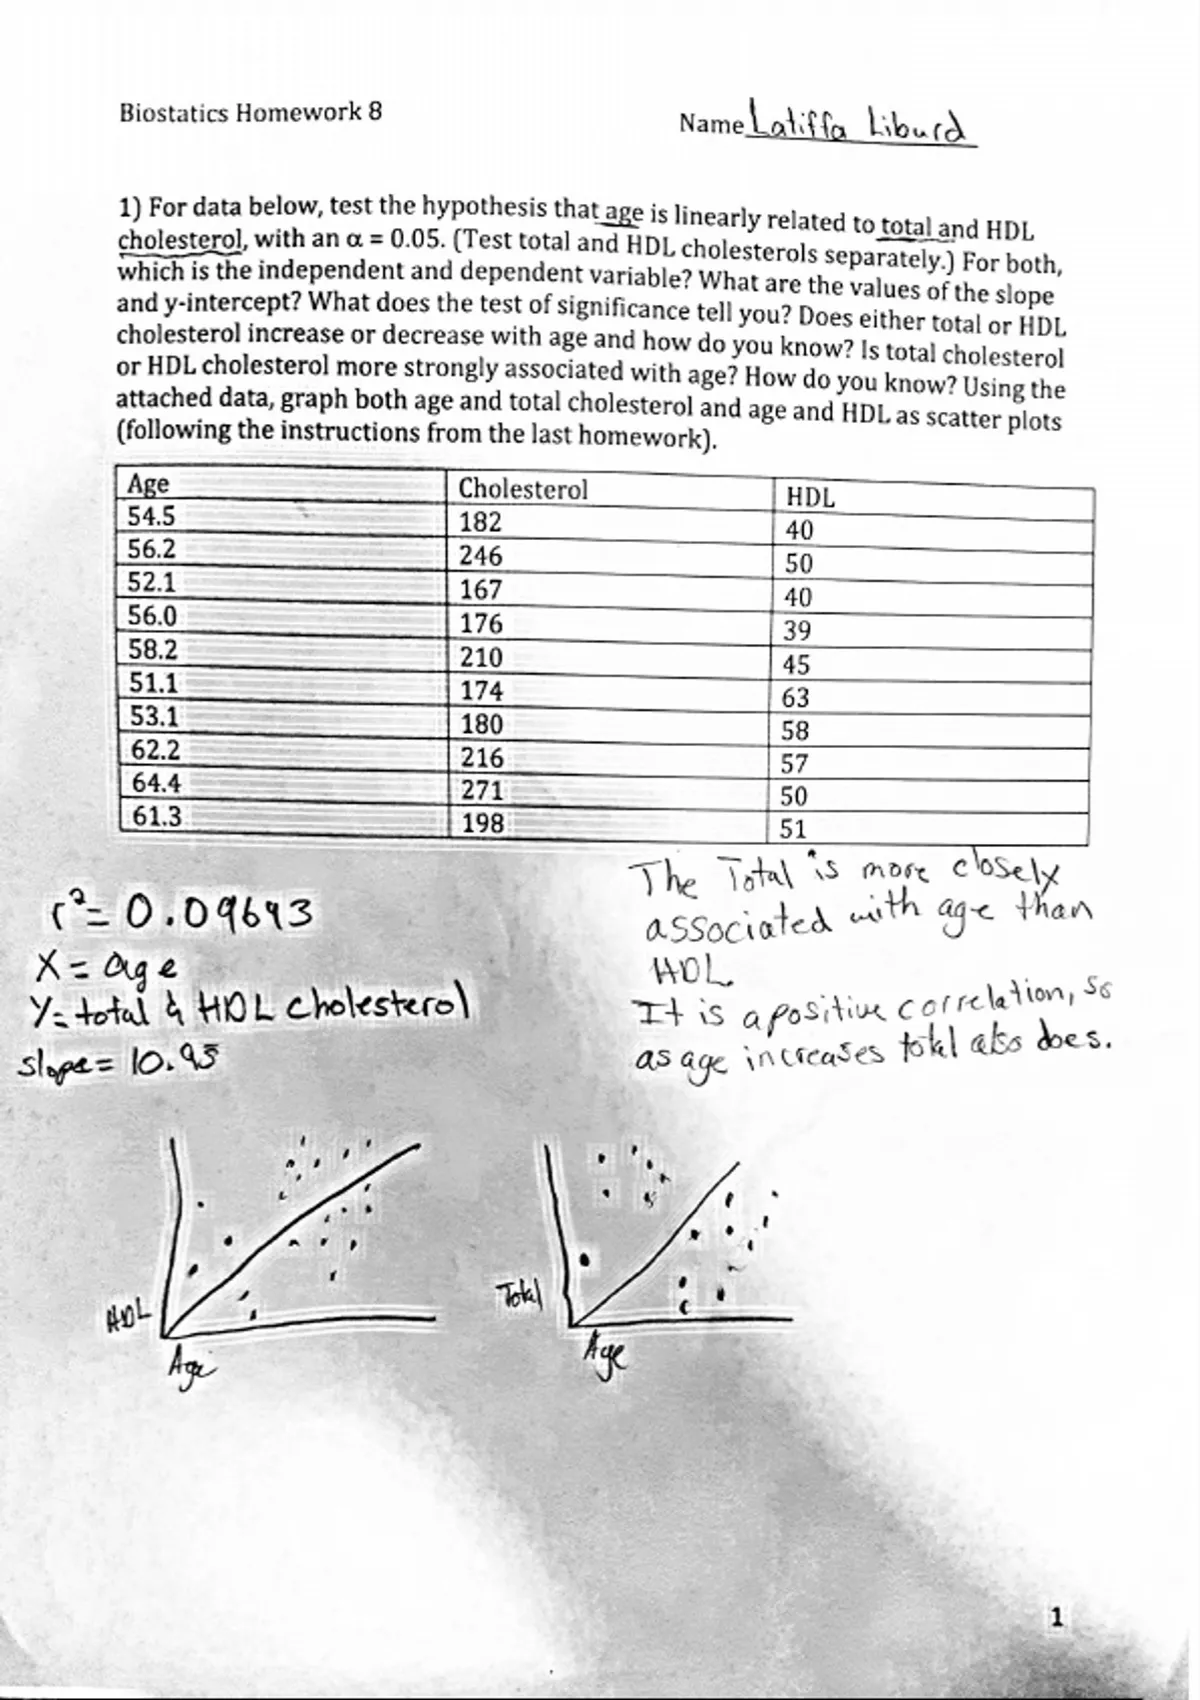 Biostatics Homework 8
Name Latiffa Liburd
1) For data below, test the hypothesis that age is linearly related to total and HDL
cholesterol, with an α = 0.05. (Test total and HDL cholesterols separately.) For both,
which is the independent and dependent variable? What are the values of the slope
and y-intercept? What does the test of significance tell you? Does either total or HDL
cholesterol increase or decrease with age and how do you know? Is total cholesterol
or HDL cholesterol more strongly associated with age? How do you know? Using the
attached data, graph both age and total cholesterol and age and HDL as scatter plots
(following the instructions from the last homework).
Age Cholesterol HDL
54.5 182 40
56.2 246 50
52.1 167 40
56.0 176 39
58.2 210 45
51.1 174 63
53.1 180 58
62.2 216 57
64.4 271 50
61.3 198 51
r²= 0.09693
X = age
Y= total & HDL cholesterol
slope= 10.93
The Total is more closely
associated with age than
HDL.
It is a positive correlation, so
as age increases total also does.
HDL
Age
Total
Age
1